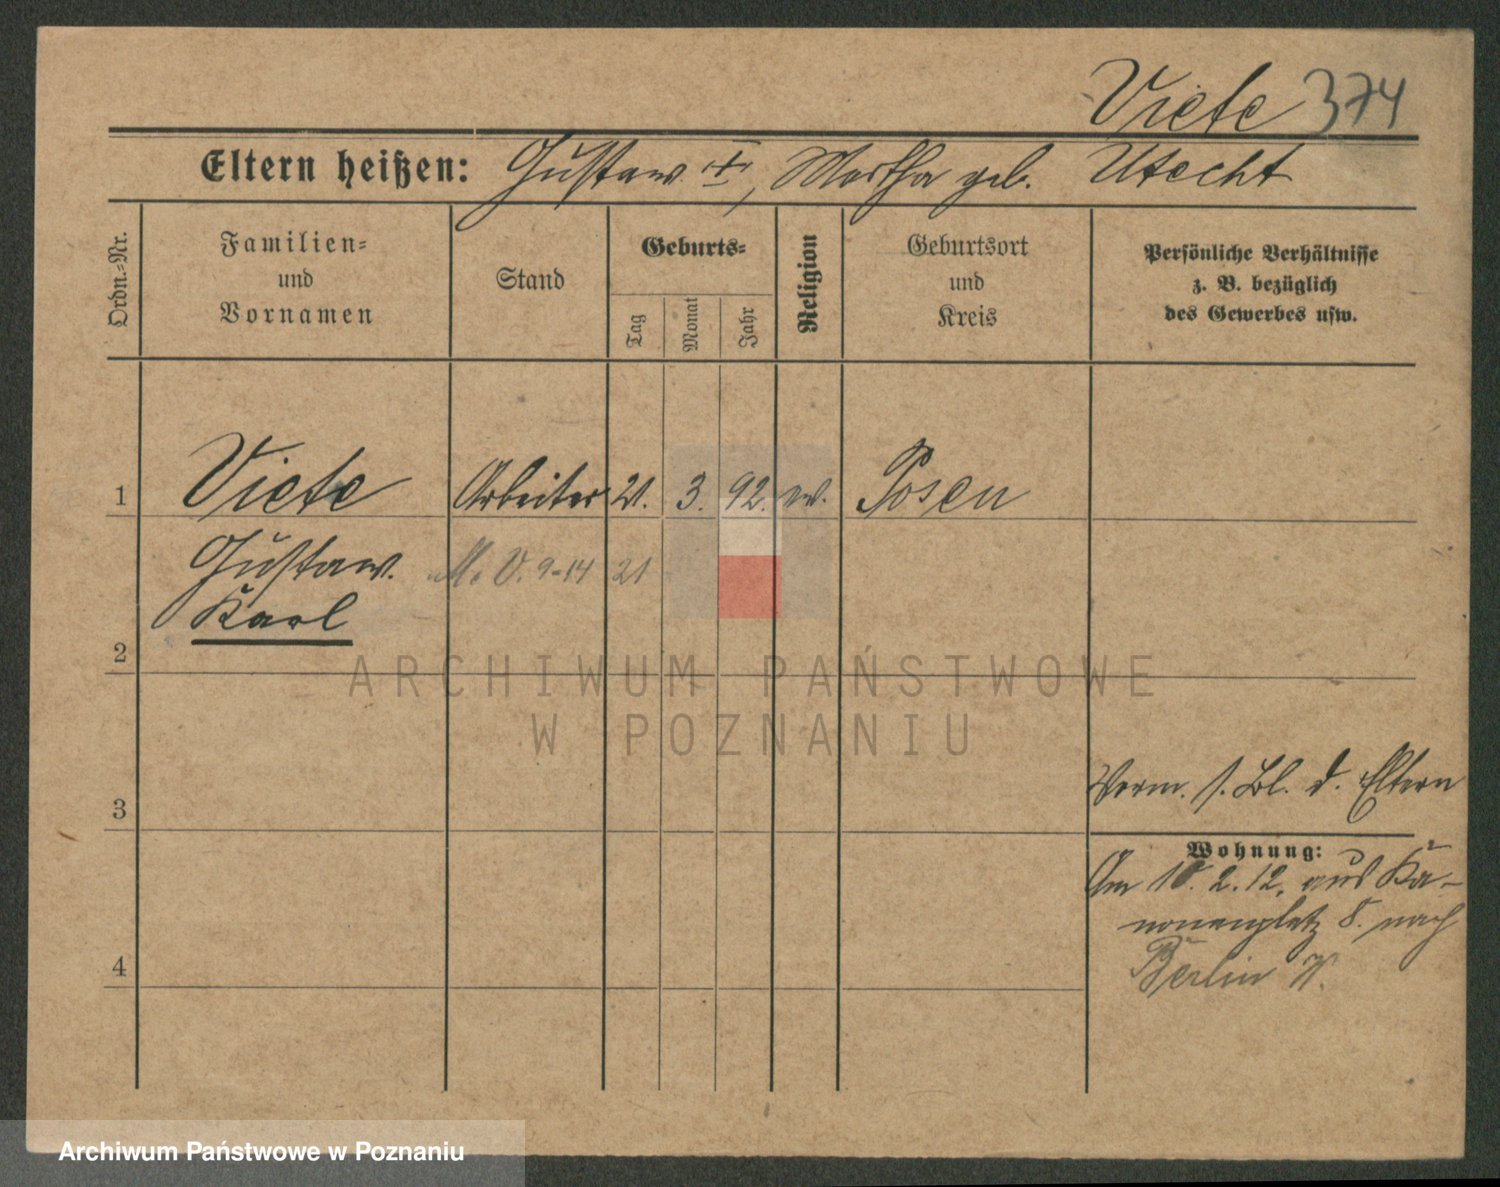 Viete 374
Eltern heißen: Gustaw †, Martha geb. Utecht
Ordn.-Nr.
Familien-
und
Vornamen
Stand
Geburts-
Tag
Monat
Jahr
Religion
Geburtsort
und
Kreis
Persönliche Verhältnisse
z. B. bezüglich
des Gewerbes usw.
1 Viete Arbeiter 21. 3. 92. ev. Posen
Gustaw. V. 9-14 21
Karl
2
ARCHIWUM PAŃSTWOWE
W POZNANIU
3
Verm. s. Bl. d. Eltern
Wohnung:
Am 10. 2. 12. aus Ka-
nonenplatz 8. nach
Berlin
4
Archiwum Państwowe w Poznaniu